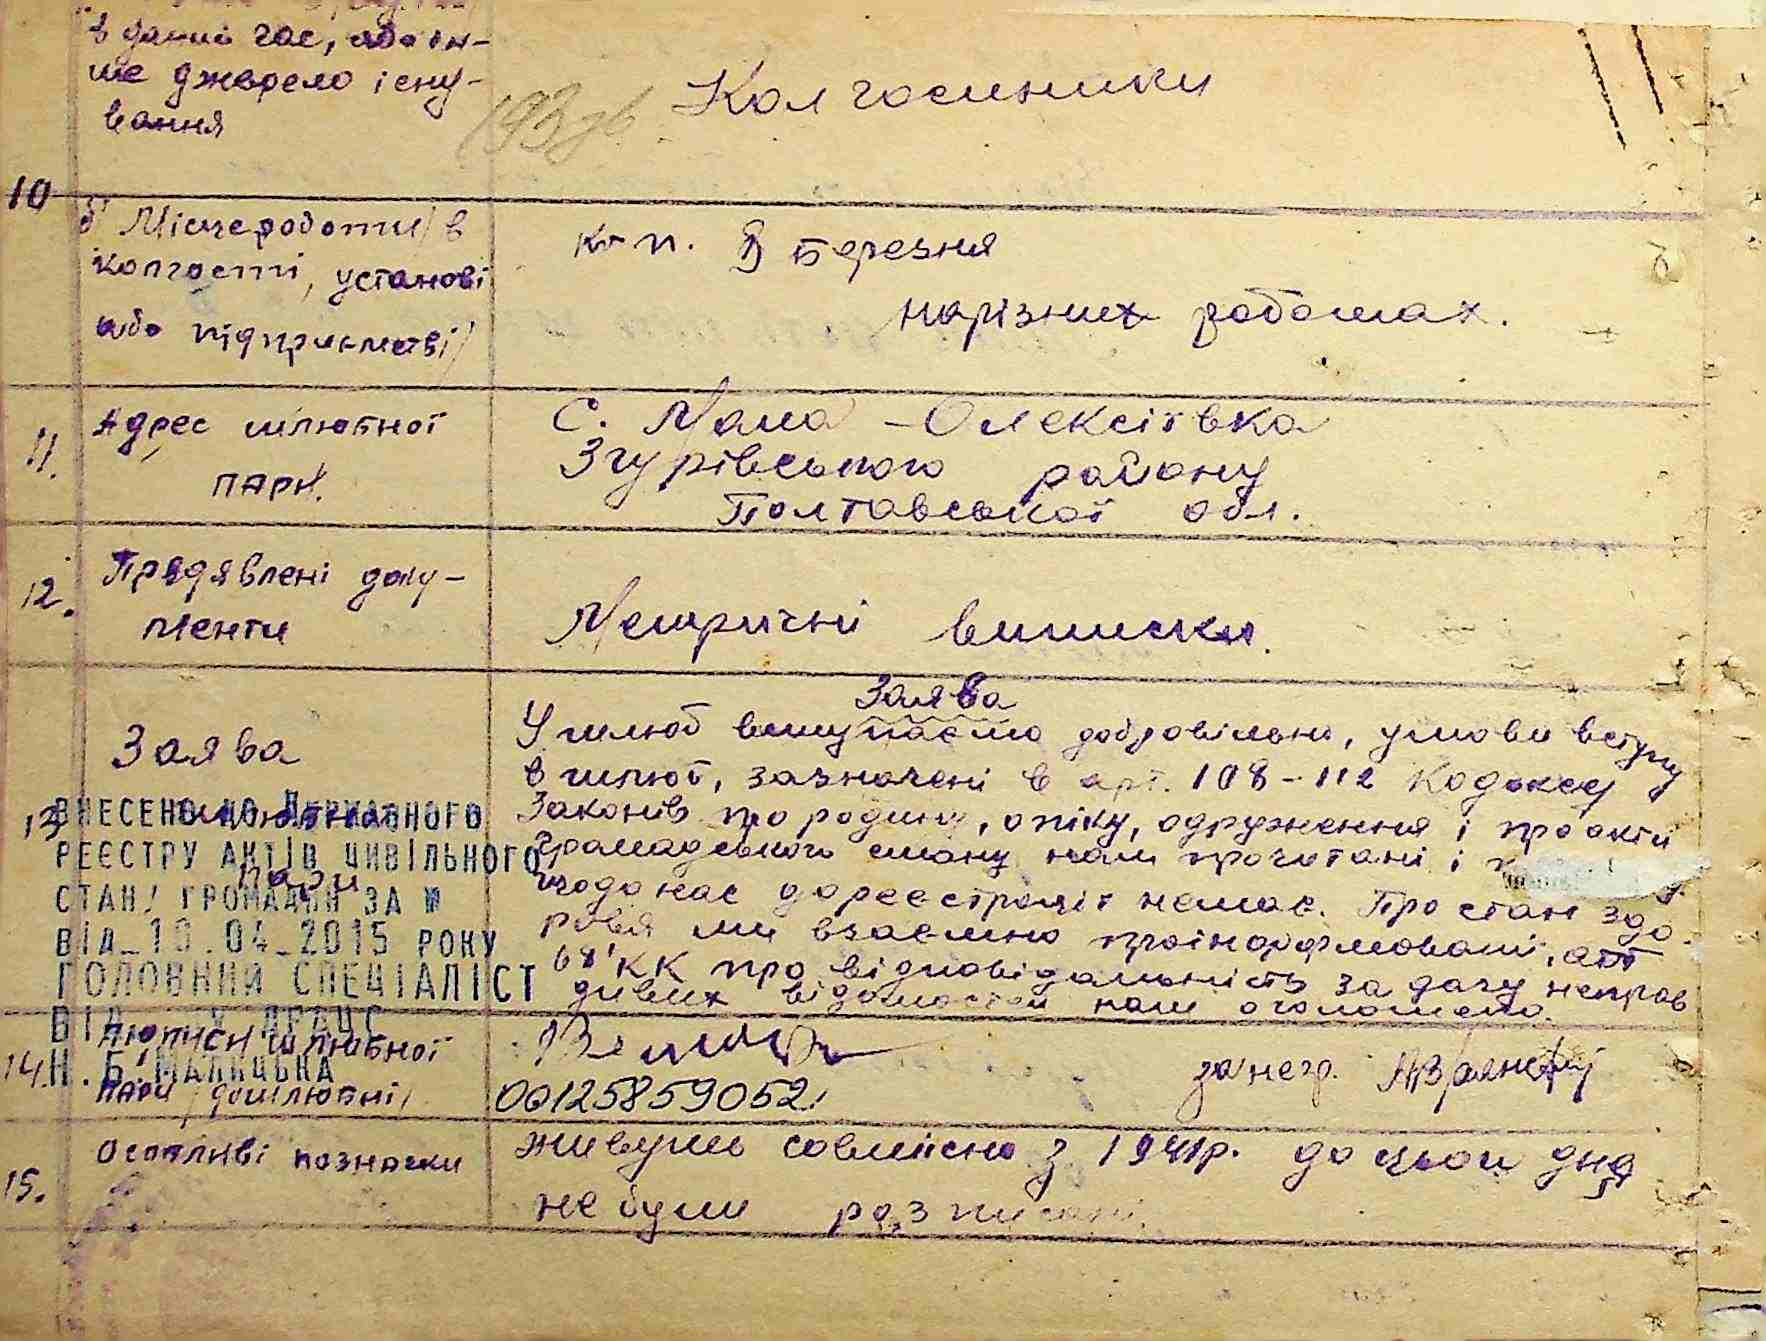 в даний час, або ін-
ше джерело існу-
вання
Колгоспники
10
б/ Місце роботи/ в
колгоспі, установі
або підприємстві/
к-п. 8 Березня
на різних роботах.
11.
Адрес шлюбної
пари.
С. Мала-Олексіївка
Згурівського району
Полтавської обл.
12.
Предявлені доку-
менти
Метричні виписки.
13
Заява
шлюбної
пари
Заява
У шлюб вступаємо добровільно, умови вступу
в шлюб, зазначені в арт. 108-112 Кодексу
Законів про родину, опіку, одруження і про акти
громадського стану нам прочитані і
щодо нас до реєстрації немає. Про стан здо-
ровя ми взаємно проінформовані, арт
КК про відповідальність за дачу неправ
дивих відомостей нам оголошено.
ВНЕСЕНО ДО ДЕРЖАВНОГО
РЕЄСТРУ АКТІВ ЦИВІЛЬНОГО
СТАНУ ГРОМАДЯН ЗА №
ВІД 10.04.2015 РОКУ
ГОЛОВНИЙ СПЕЦІАЛІСТ
ВІД ДРАЦС
Н.Б.
14.
підписи шлюбної
пари /дошлюбні/
за негр.
00125859052
15.
Особливі позначки
живуть совмісно з 1941р. до цього дня
не були розписані